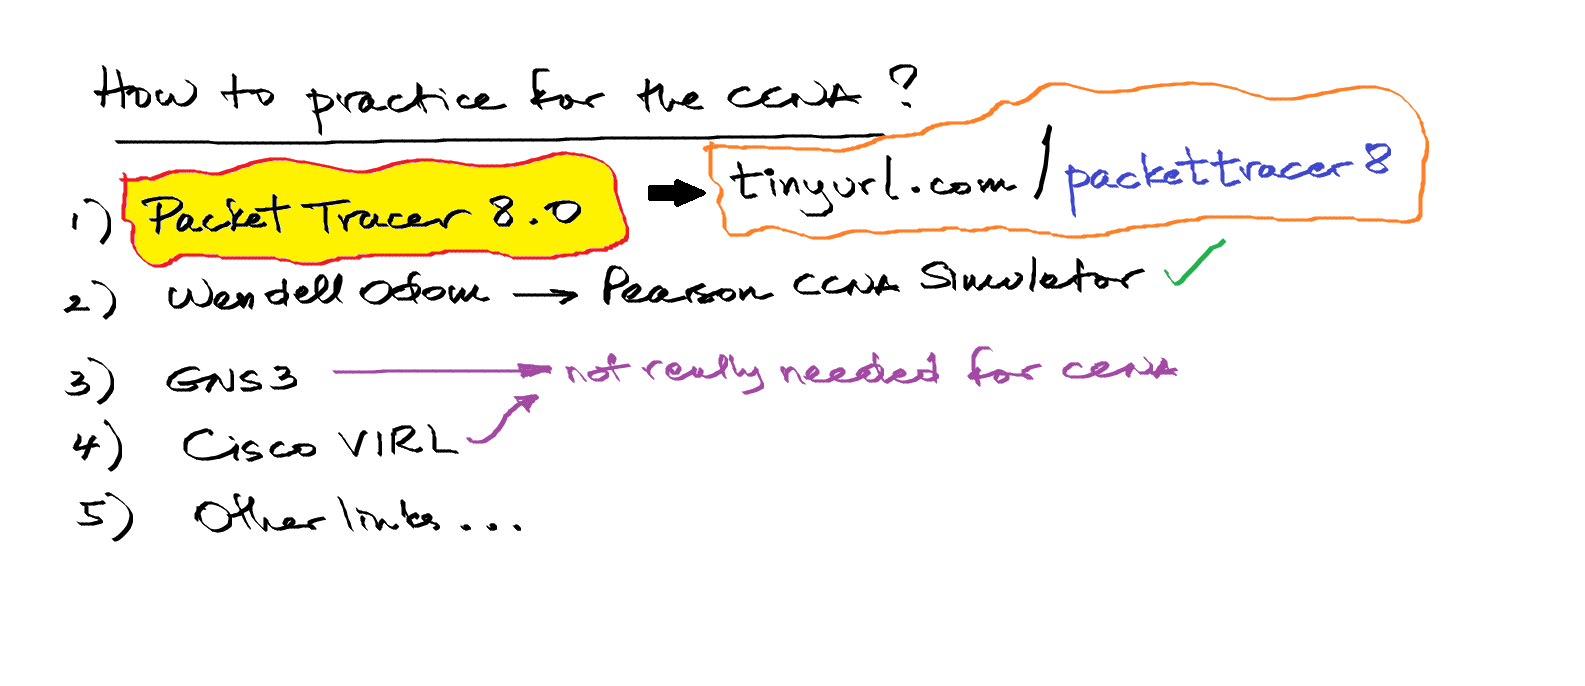 How to practice for the CCNA ?
1) Packet Tracer 8.0 → tinyurl.com/packettracer8
2) Wendell Odom → Pearson CCNA Simulator ✓
3) GNS3 → not really needed for CCNA
4) Cisco VIRL
5) Other links...